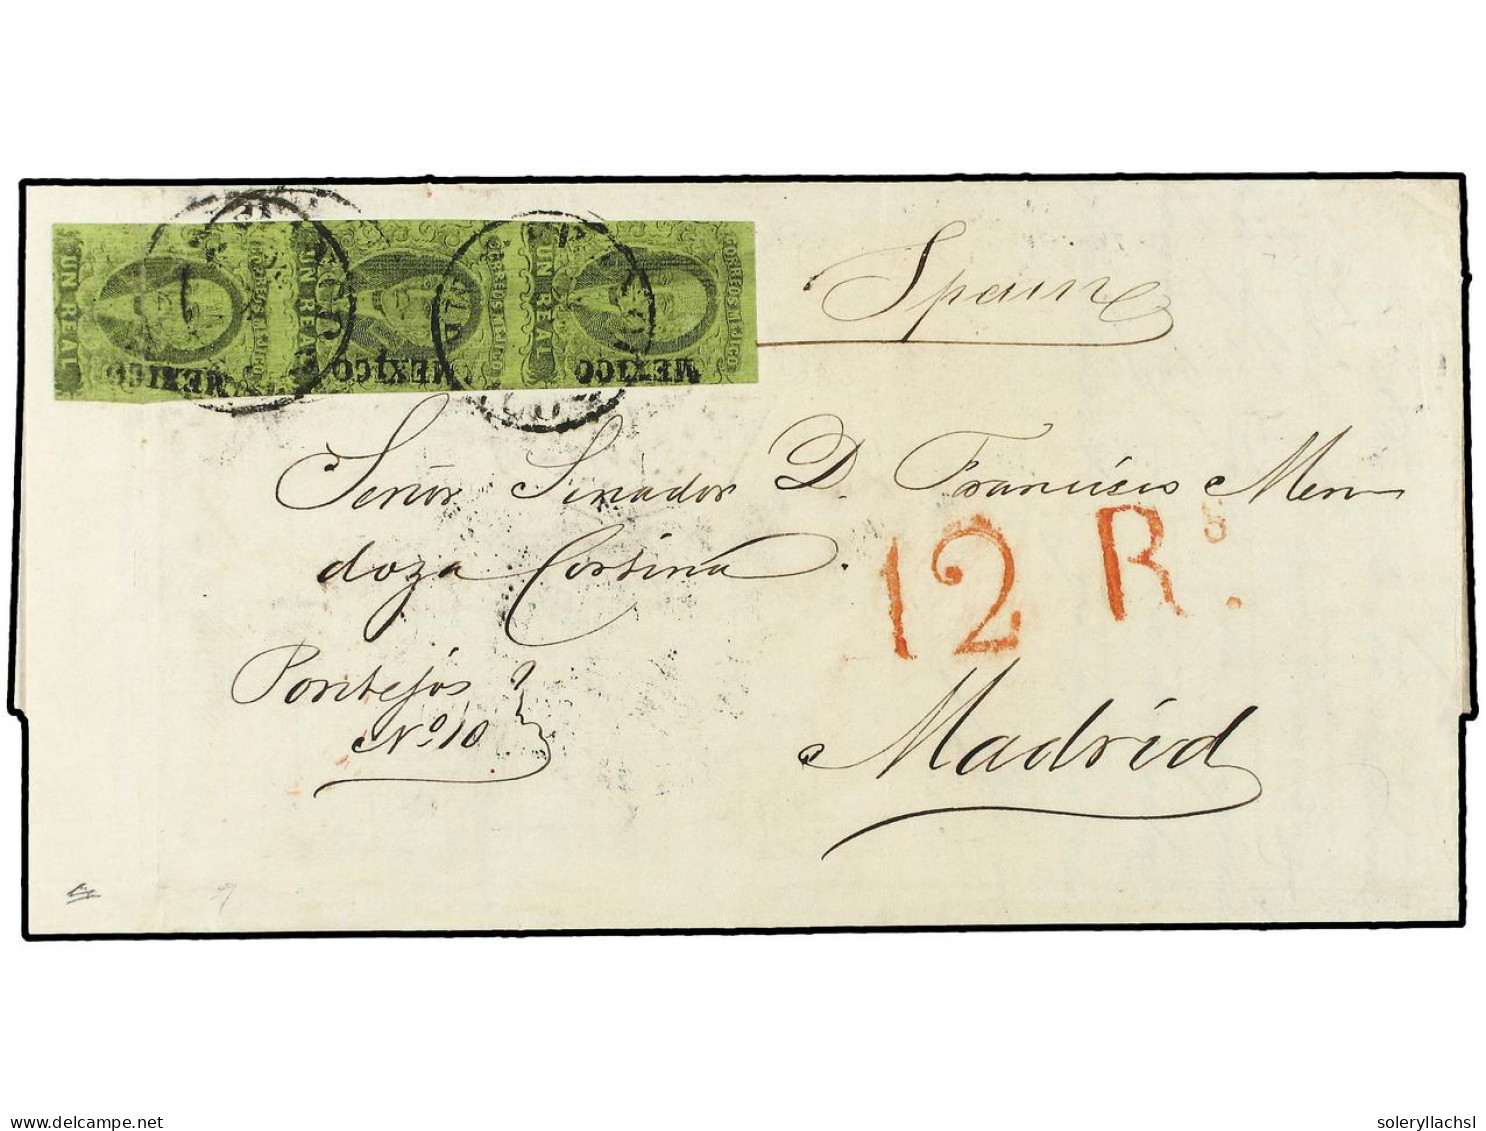 UN REAL CORREOS MEJICO UN REAL CORREOS MEJICO UN REAL CORREOS MEJICO
MEXICO MEXICO MEXICO MEXICO MEXICO
Spain
Señor Senador D. Francisco Men
doza Cortina.
12 Rs.
Pontejos
No. 10
Madrid
delcampe.net
soleryllachsl